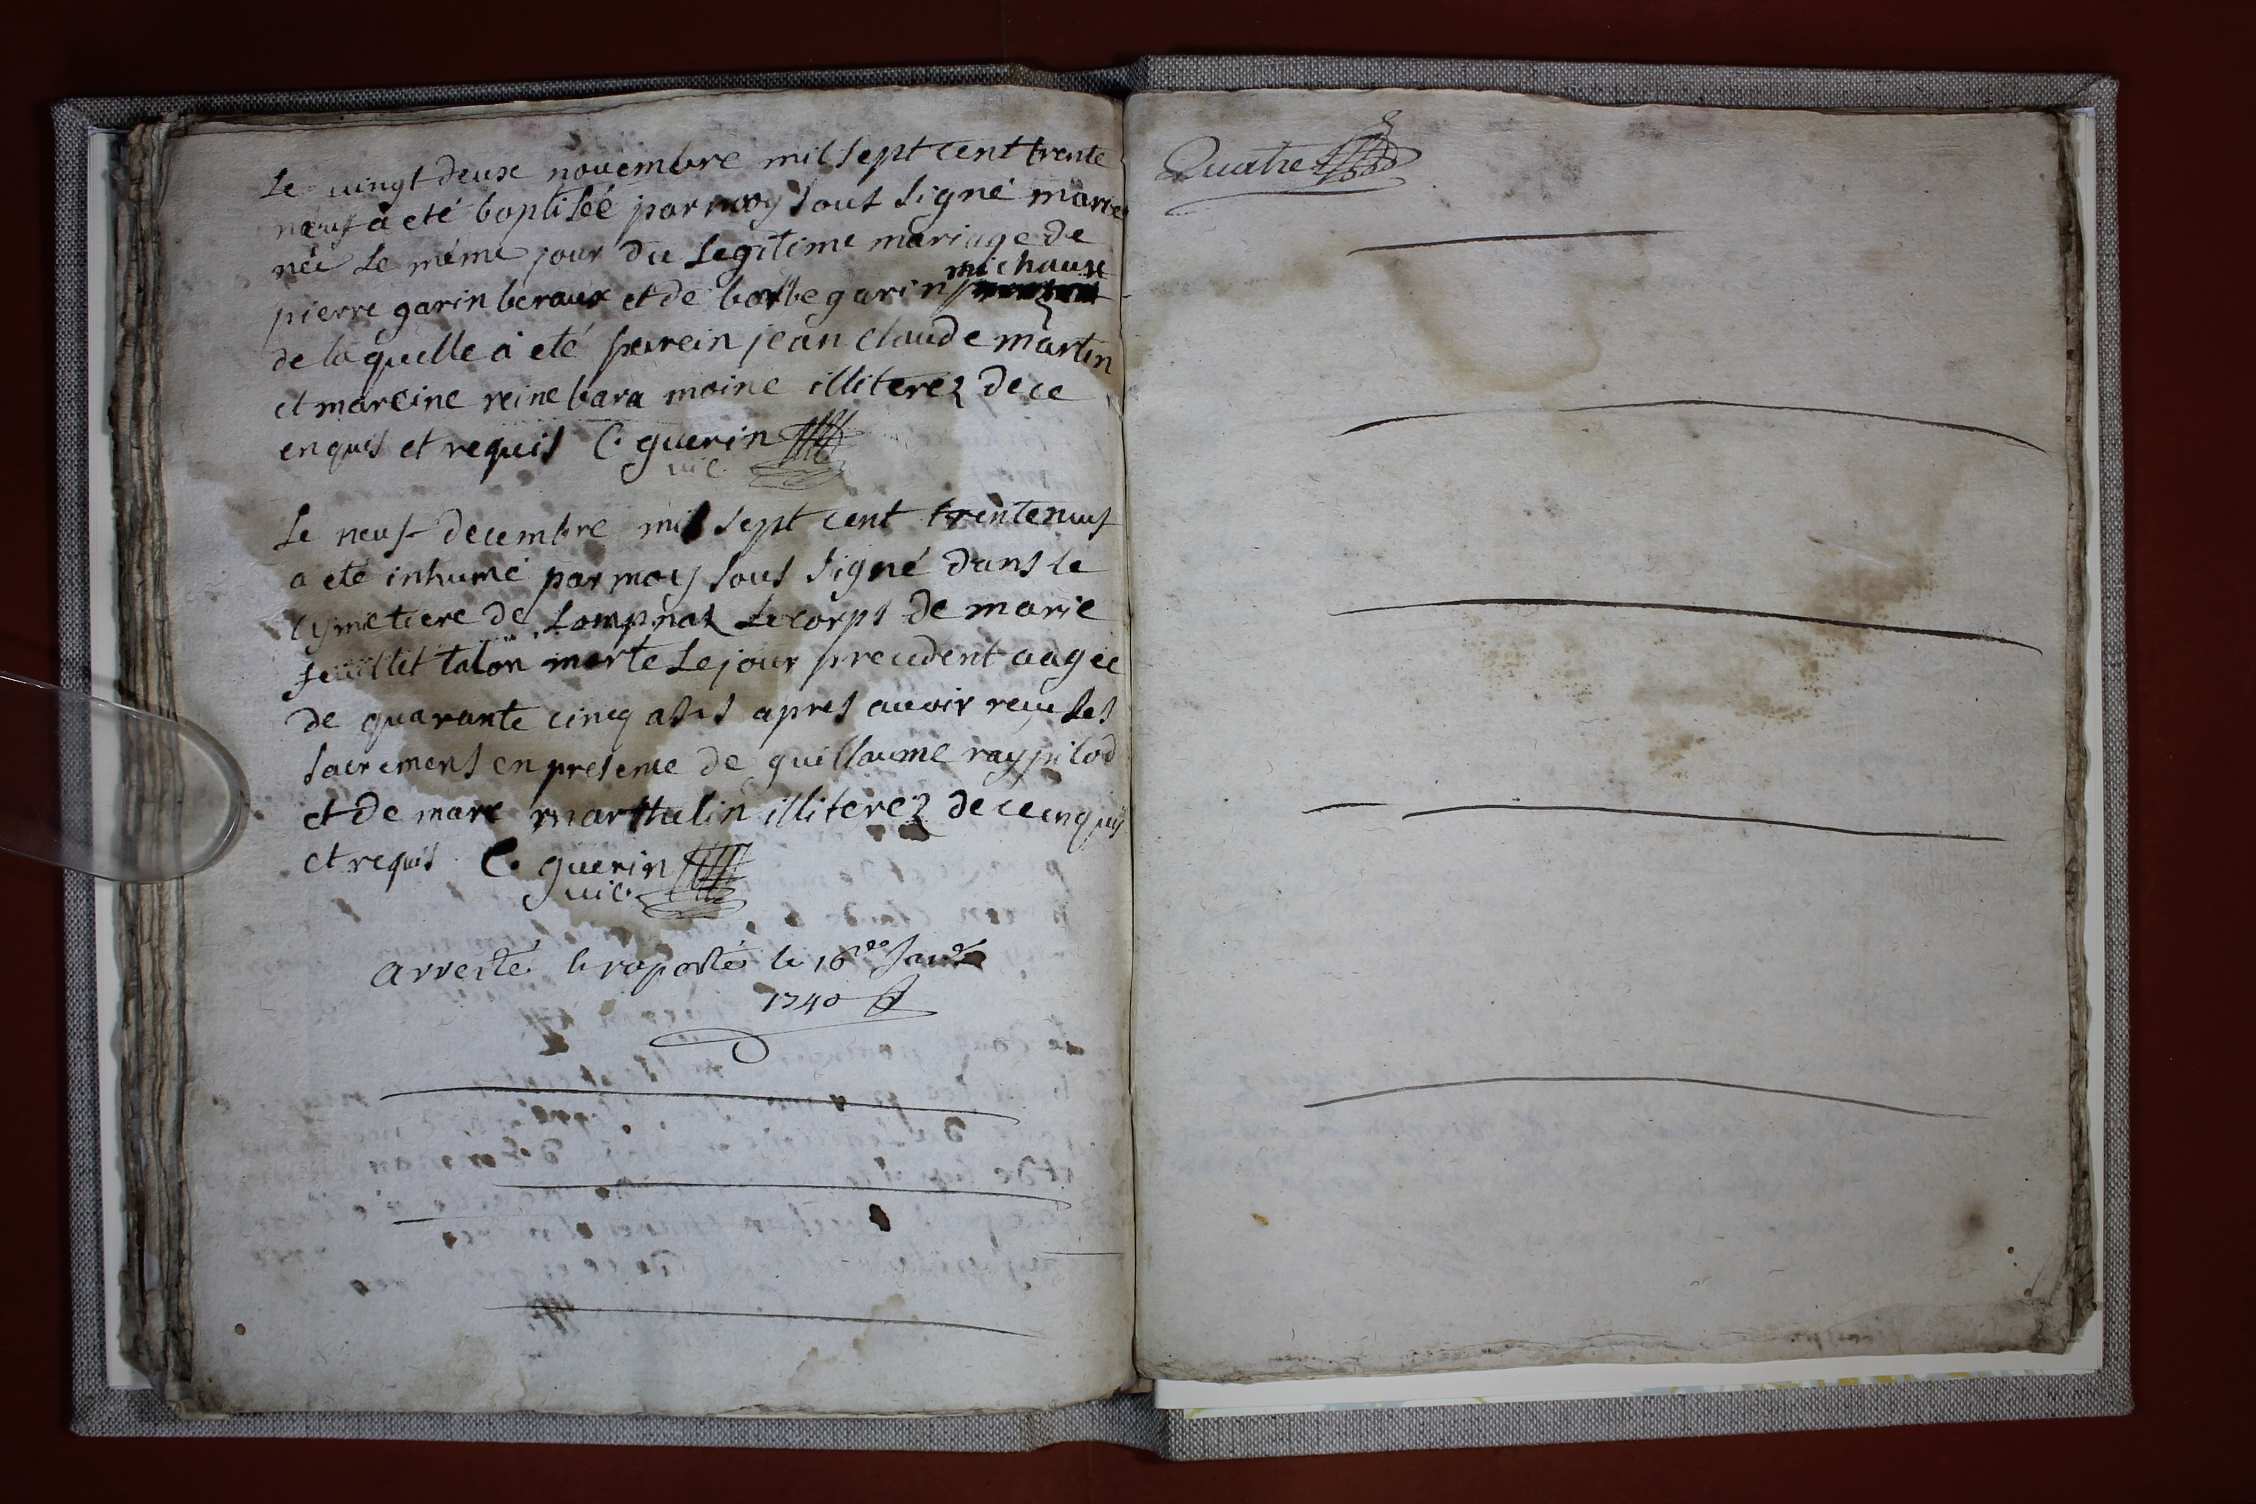 Le vingt deuxe novembre mil sept cent trente
neuf à eté baptisée par moy sous signé marie
née le méme jour du legitime mariage de
pierre garin beraux et de barbe garin michaux
de laquelle à eté parein jean claude martin
et mareine reine bara moine illiterez de ce
enquis et requis C. guerin
vic.
Le neuf decembre mil sept cent trenteneuf
a eté inhumé par moy sous signé dans le
cymetiere de Lompnaz le corps de marie
feuillet talon morte le jour precedent aagée
de quarante cinq ans apres avoir reçu les
sacremens en presence de guillaume ray pilod
et de marc marthulin illiterez de ce enquis
et requis C. guerin
vic.
arresté le raporté le 16 Janr
1740
Quatre